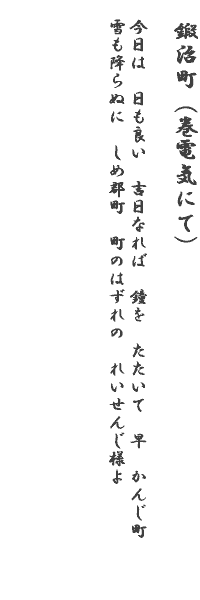 鍛治町（巻電気にて）
今日は　日も良い　吉日なれば　鐘を　たたいて　早　かんじ町
雪も降らぬに　しめ郡町　町のはずれの　れいせんじ様よ